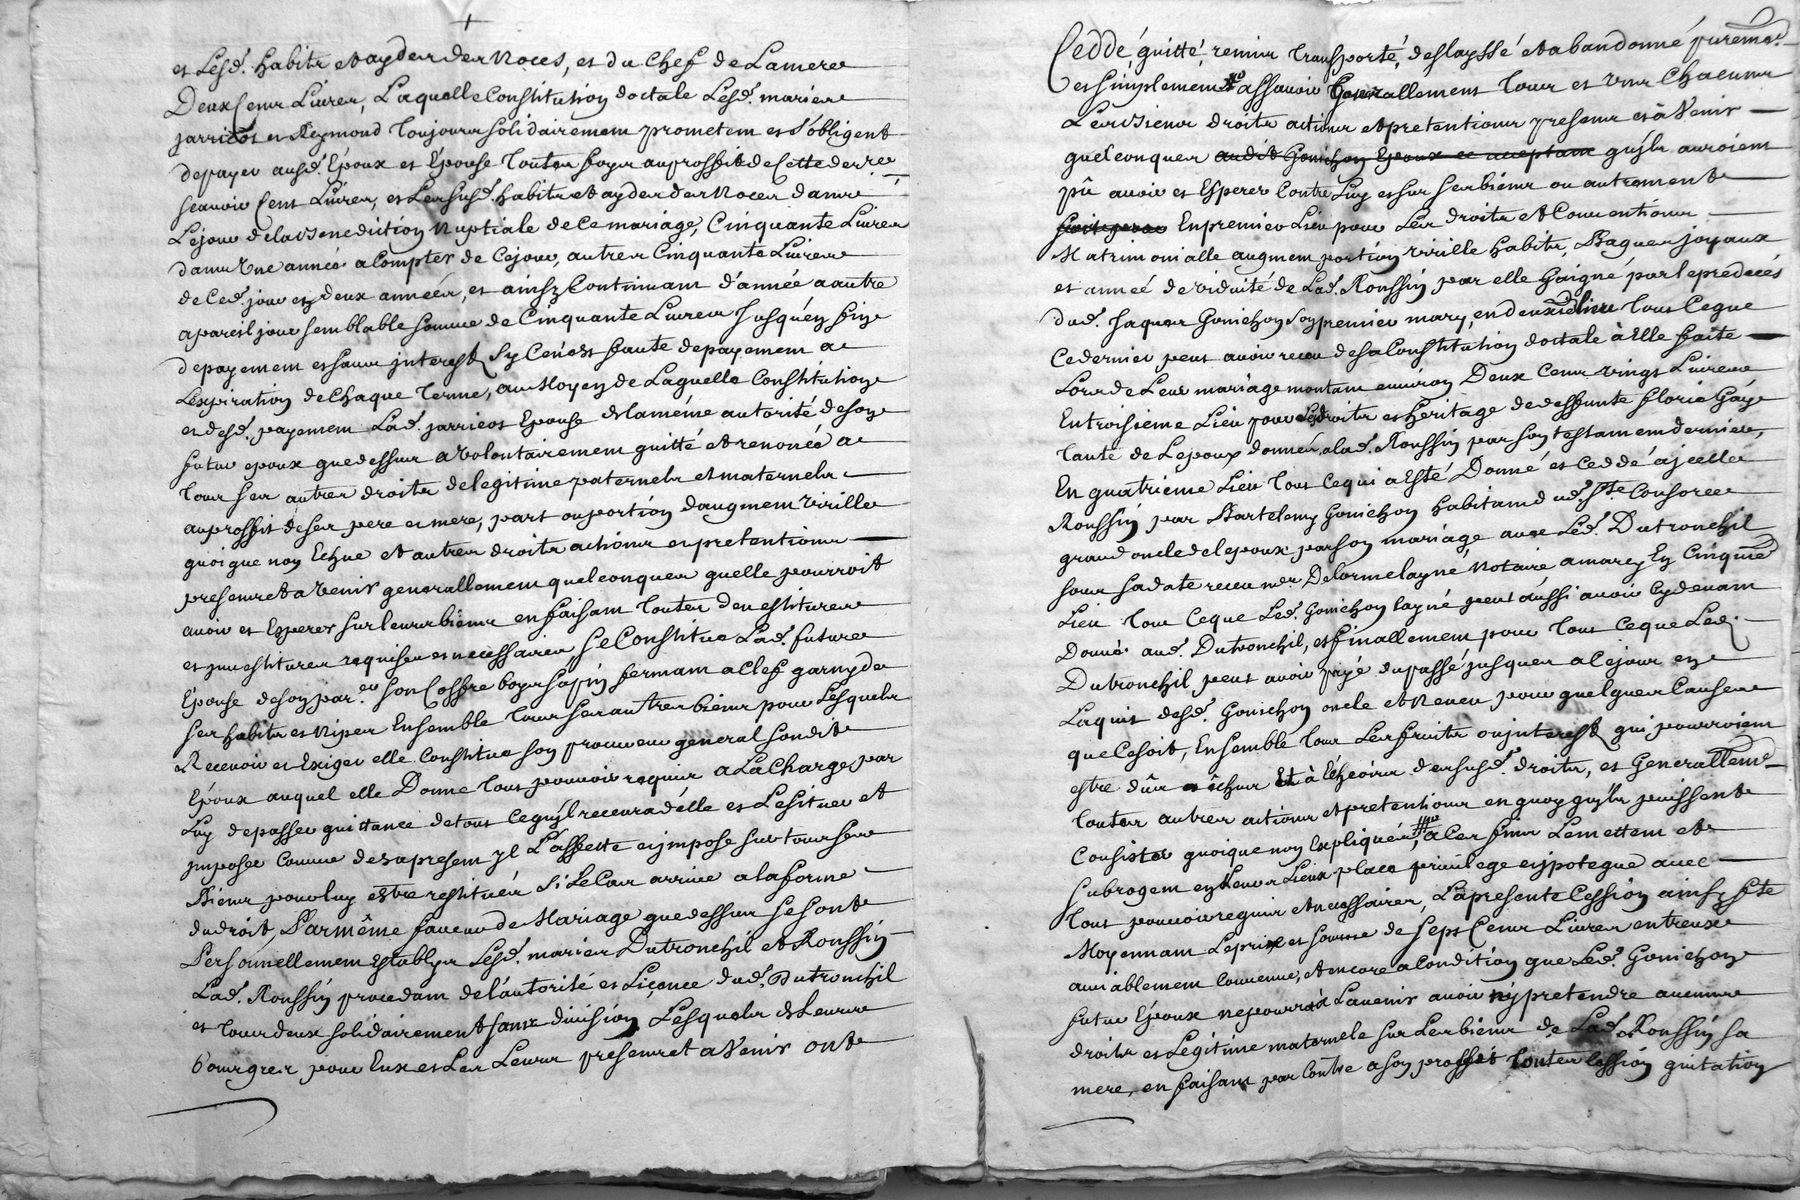 et Lesd. habits et aydes des Noces, et du Chef de La mere
Deux Cens Livres, Laquelle Constitution doctale Lesd. maries
jarricot et Reymond toujours solidairement prometent et s'obligent
de payer ausd. Epoux et Epouse toutes foys au proffit de Cette derre.
scavoir Cent Livres, et Les susd. habits et aydes des Noces dans
Le jour de la Benediction Nuptiale de Ce mariage, Cinquante Livres
dans Une année a Compter de Ce jour, autres Cinquante Livres
de Ced. jour en deux années, et ainsy Continuant d'année a autre
a pareil jour semblable somme de Cinquante Livres Jusqu'en fin
de payement et sans interest Sy Ce n'est faute de payement a
L'expiration de Chaque terme, au Moyen de Laquelle Constitution
et desd. payement Lad. jarricot Epouse de la méme autorité de son
futur epoux que dessus a volontairement quitté et renoncé a
tous ses autres droits de legitime paternels et maternels
au proffit de ses pere et mere, part ou portion d'augment virille
quoique non Echue et autres droits actions et pretentions
presents et a venir generallement quelconques quelle pourroit
avoir et Esperer sur leurs biens en faisant toutes devestitures
et investitures requises et necessaires, se Constitue Lad. future
Epouse de son par.er son Coffre boys sapin fermant a Clef garny de
ses habits et Nipes Ensemble tous ses autres biens pour Lesquels
Recevoir et Exiger elle Constitue son procureur general sondit
Epoux auquel elle Donne tous pouvoirs requis a La Charge par
Luy de passer quittance de tous ce qu'il recevra d'elle et Le situer et
imposer Comme des a present il L'assette et impose sur tous ses
Biens pour luy estre restitués si Le Cas arrive a la forme
du droit, Par même faveur de Mariage que dessus se sont
Personnellement Establys Lesd. maries Dutronchil et Roussin
Lad. Roussin procedant de l'autorité et Liçence dud. Dutronchil
et tous deux solidairement sans division Lesquels de Leurs
bons gres pour Eux et Les Leurs presents et a Venir ont
Cedde, quitté, remis transporté, deslayssé et abandonné purement
et simplement assavoir Generallement tous et Uns Chacuns
Leurs siens droits actions et pretentions presents et à Venir
quelconques audit Gonichon Epoux ce acceptant qu'ils auroient
pû avoir et Esperer Contre Luy et sur ses biens ou autrement
En premier Lieu pour Les droits et Conventions
Matrimonialle augment portion virille habits, Bagues joyaux
et année de viduité de Lad. Roussin par elle gaigné par le predécés
dud. Jaques Gonichon son premier mary, en deuxie lieu tous Ce que
Ce dernier peut avoir receu de sa Constitution doctale à Elle faite
Lors de Leur mariage montant environ Deux Cens vingt Livres
En troisieme Lieu pour Les droits et heritage de deffunte floric Gay
tante de L'epoux donnés a lad. Roussin par son testament dernier,
En quatrieme Lieu tous Ce qui a Esté Donné et Ceddé a jcelle
Roussin par Bartelemy Gonichon habitant dud. Ste Consorce
grand oncle de l'epoux par son mariage avec Led. Dutronchil
sous sa date receu Mr. Delorme layné Notaire a marcy En Cinqume
Lieu tous Ce que Led. Gonichon layné peut aussi avoir Cydevant
Donné aud. Dutronchil, et finallement pour tous Ce que Led.
Dutronchil peut avoir payé du passé jusques a Ce jour en
L'aquit desd. Gonichon oncle et Neveu pour quelques Causes
que Ce soit, Ensemble tous Les fruits ou interest qui pourroient
estre dûs et échus Et à l'échéoirs des susd. droits, et Generallemt
toutes autres actions et pretentions en quoy qu'ils puissent
Consister quoique non Expliqués, a Ces fins Le mettent et
subrogent en Leurs Lieux place privilege et ipoteque avec
tous pouvoirs requis et necessaires, La presente Cession ainsy fte
Moyennant Le prix et somme de sept Cens Livres entreux
amiablement Convenue, et encore a Condition que Led. Gonichon
futur Epoux ne pourra a L'avenir avoir ny pretendre aucuns
droits et Legitime maternelle sur Les biens de Lad. Roussin sa
mere, en faisant par Contre a son proffit toutes Cession quitation